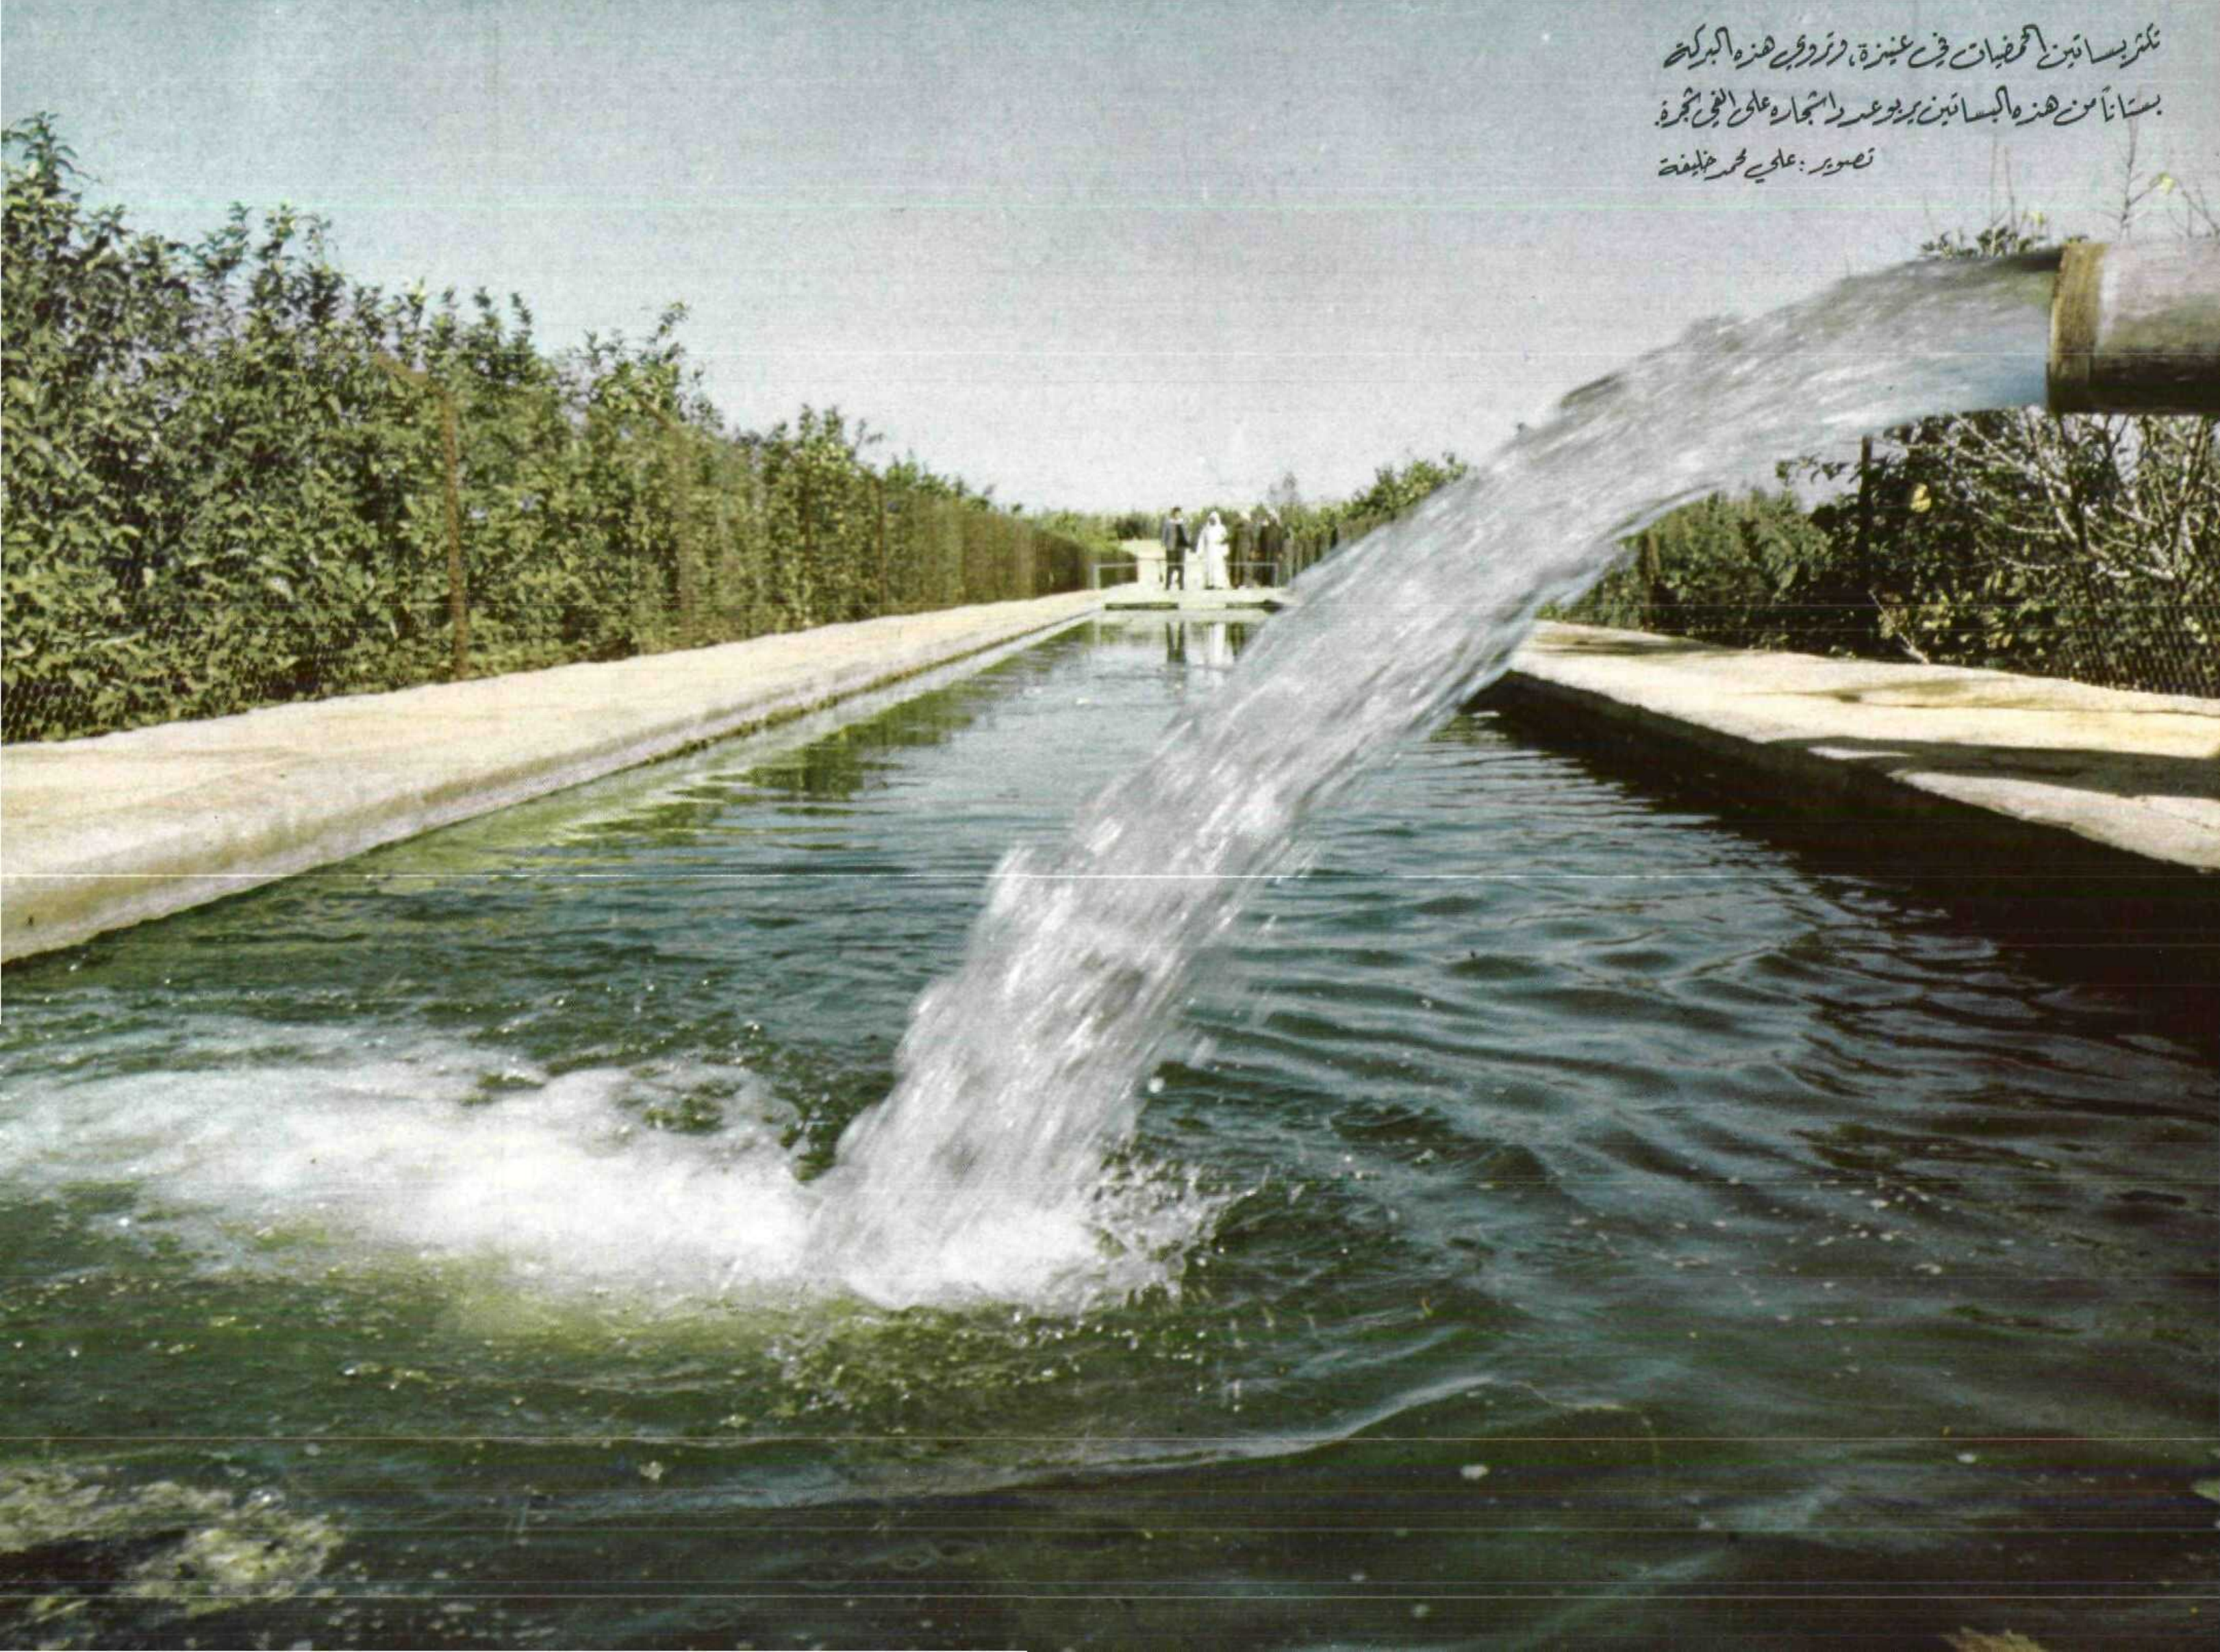 تكثر بساتين الحمضيات في عنيزة، وتروي هذه البركة
بستاناً من هذه البساتين يربو عدد اشجاره على الفي شجرة.
تصوير : علي محمد خليفة